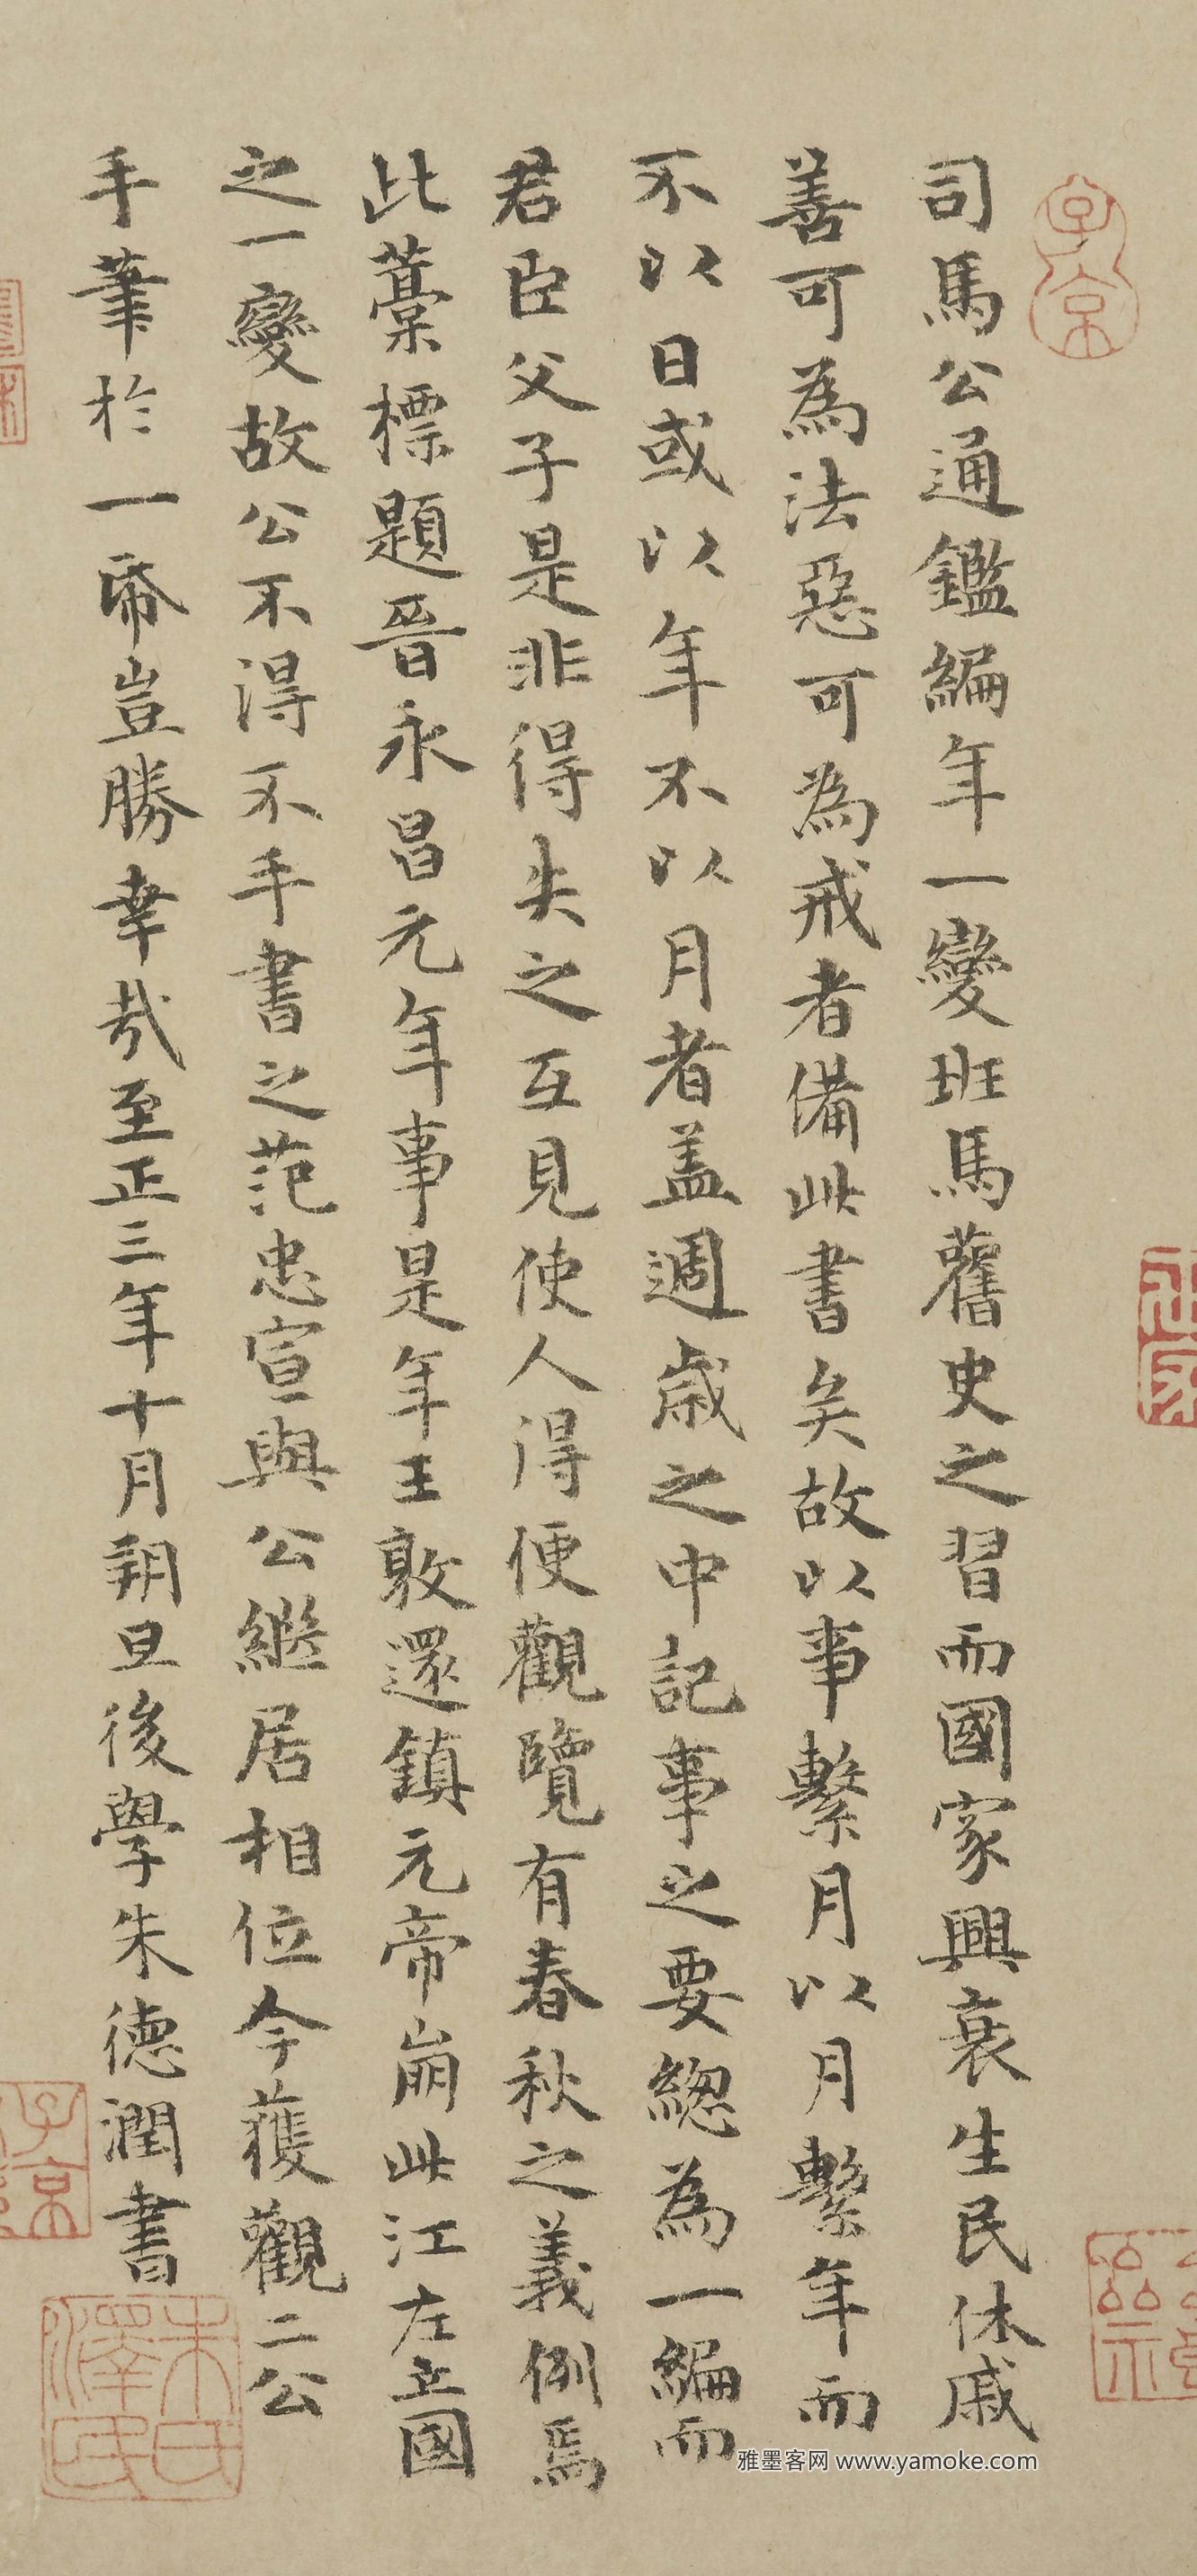 司馬公通鑑編年一變班馬舊史之習而國家興衰生民休戚
善可為法惡可為戒者備此書矣故以事繫月以月繫年而
不以日或以年不以月者盖週歲之中記事之要緫為一編而
君臣父子是非得失之互見使人得便觀覽有春秋之義例焉
此藁標題晉永昌元年事是年王敦還鎮元帝崩此江左立國
之一變故公不得不手書之范忠宣與公繼居相位今獲觀二公
手筆於一帋豈勝幸哉至正三年十月朔旦後學朱德潤書
子京
子京
朱氏澤民
雅墨客网 www.yamoke.com